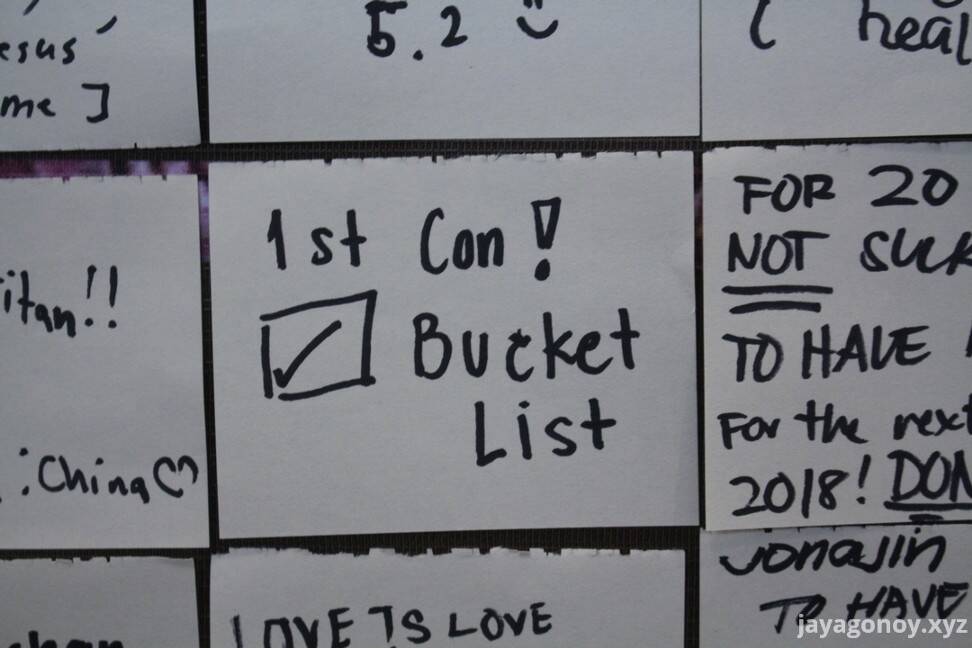 5.2
heal
me ]
1st Con!
Bucket
List
itan!!
:China
FOR 20
NOT SUCK
TO HAVE
For the next
2018! DON
LOVE IS LOVE
TO HAVE
jayagonoy.xyz